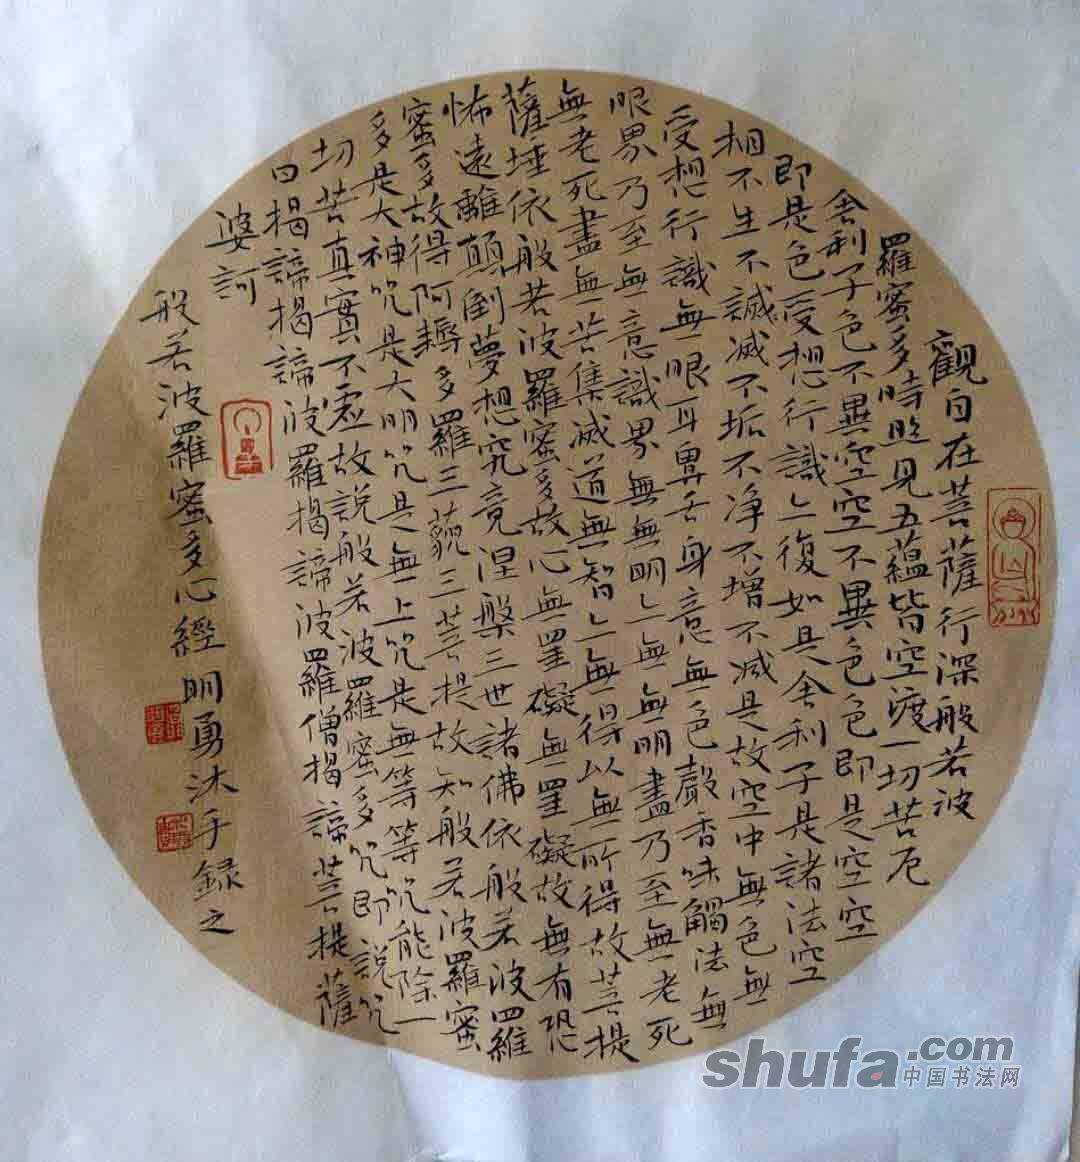 觀自在菩薩行深般若波
羅蜜多時照見五蘊皆空渡一切苦厄
舍利子色不異空空不異色色即是空空
即是色受想行識亦復如是舍利子是諸法空
相不生不誠滅不垢不净不增不减是故空中無色無
受想行識無眼耳鼻舌身意無色聲香味觸法無
眼界乃至無意識界無無明亦無無明盡乃至無老死
無老死盡無苦集滅道無智亦無得以無所得故菩提
薩埵依般若波羅蜜多故心無罣礙無罣礙故無有恐
怖遠離顛倒夢想究竟涅槃三世諸佛依般若波羅
蜜多故得阿耨多羅三藐三菩提故知般若波羅蜜
多是大神咒是大明咒是無上咒是無等等咒能除一
切苦真實不虛故說般若波羅蜜多咒即說咒
曰揭諦揭諦波羅揭諦波羅僧揭諦菩提薩
婆訶
般若波羅蜜多心經明勇沐手錄之
shufa.com
中国书法网